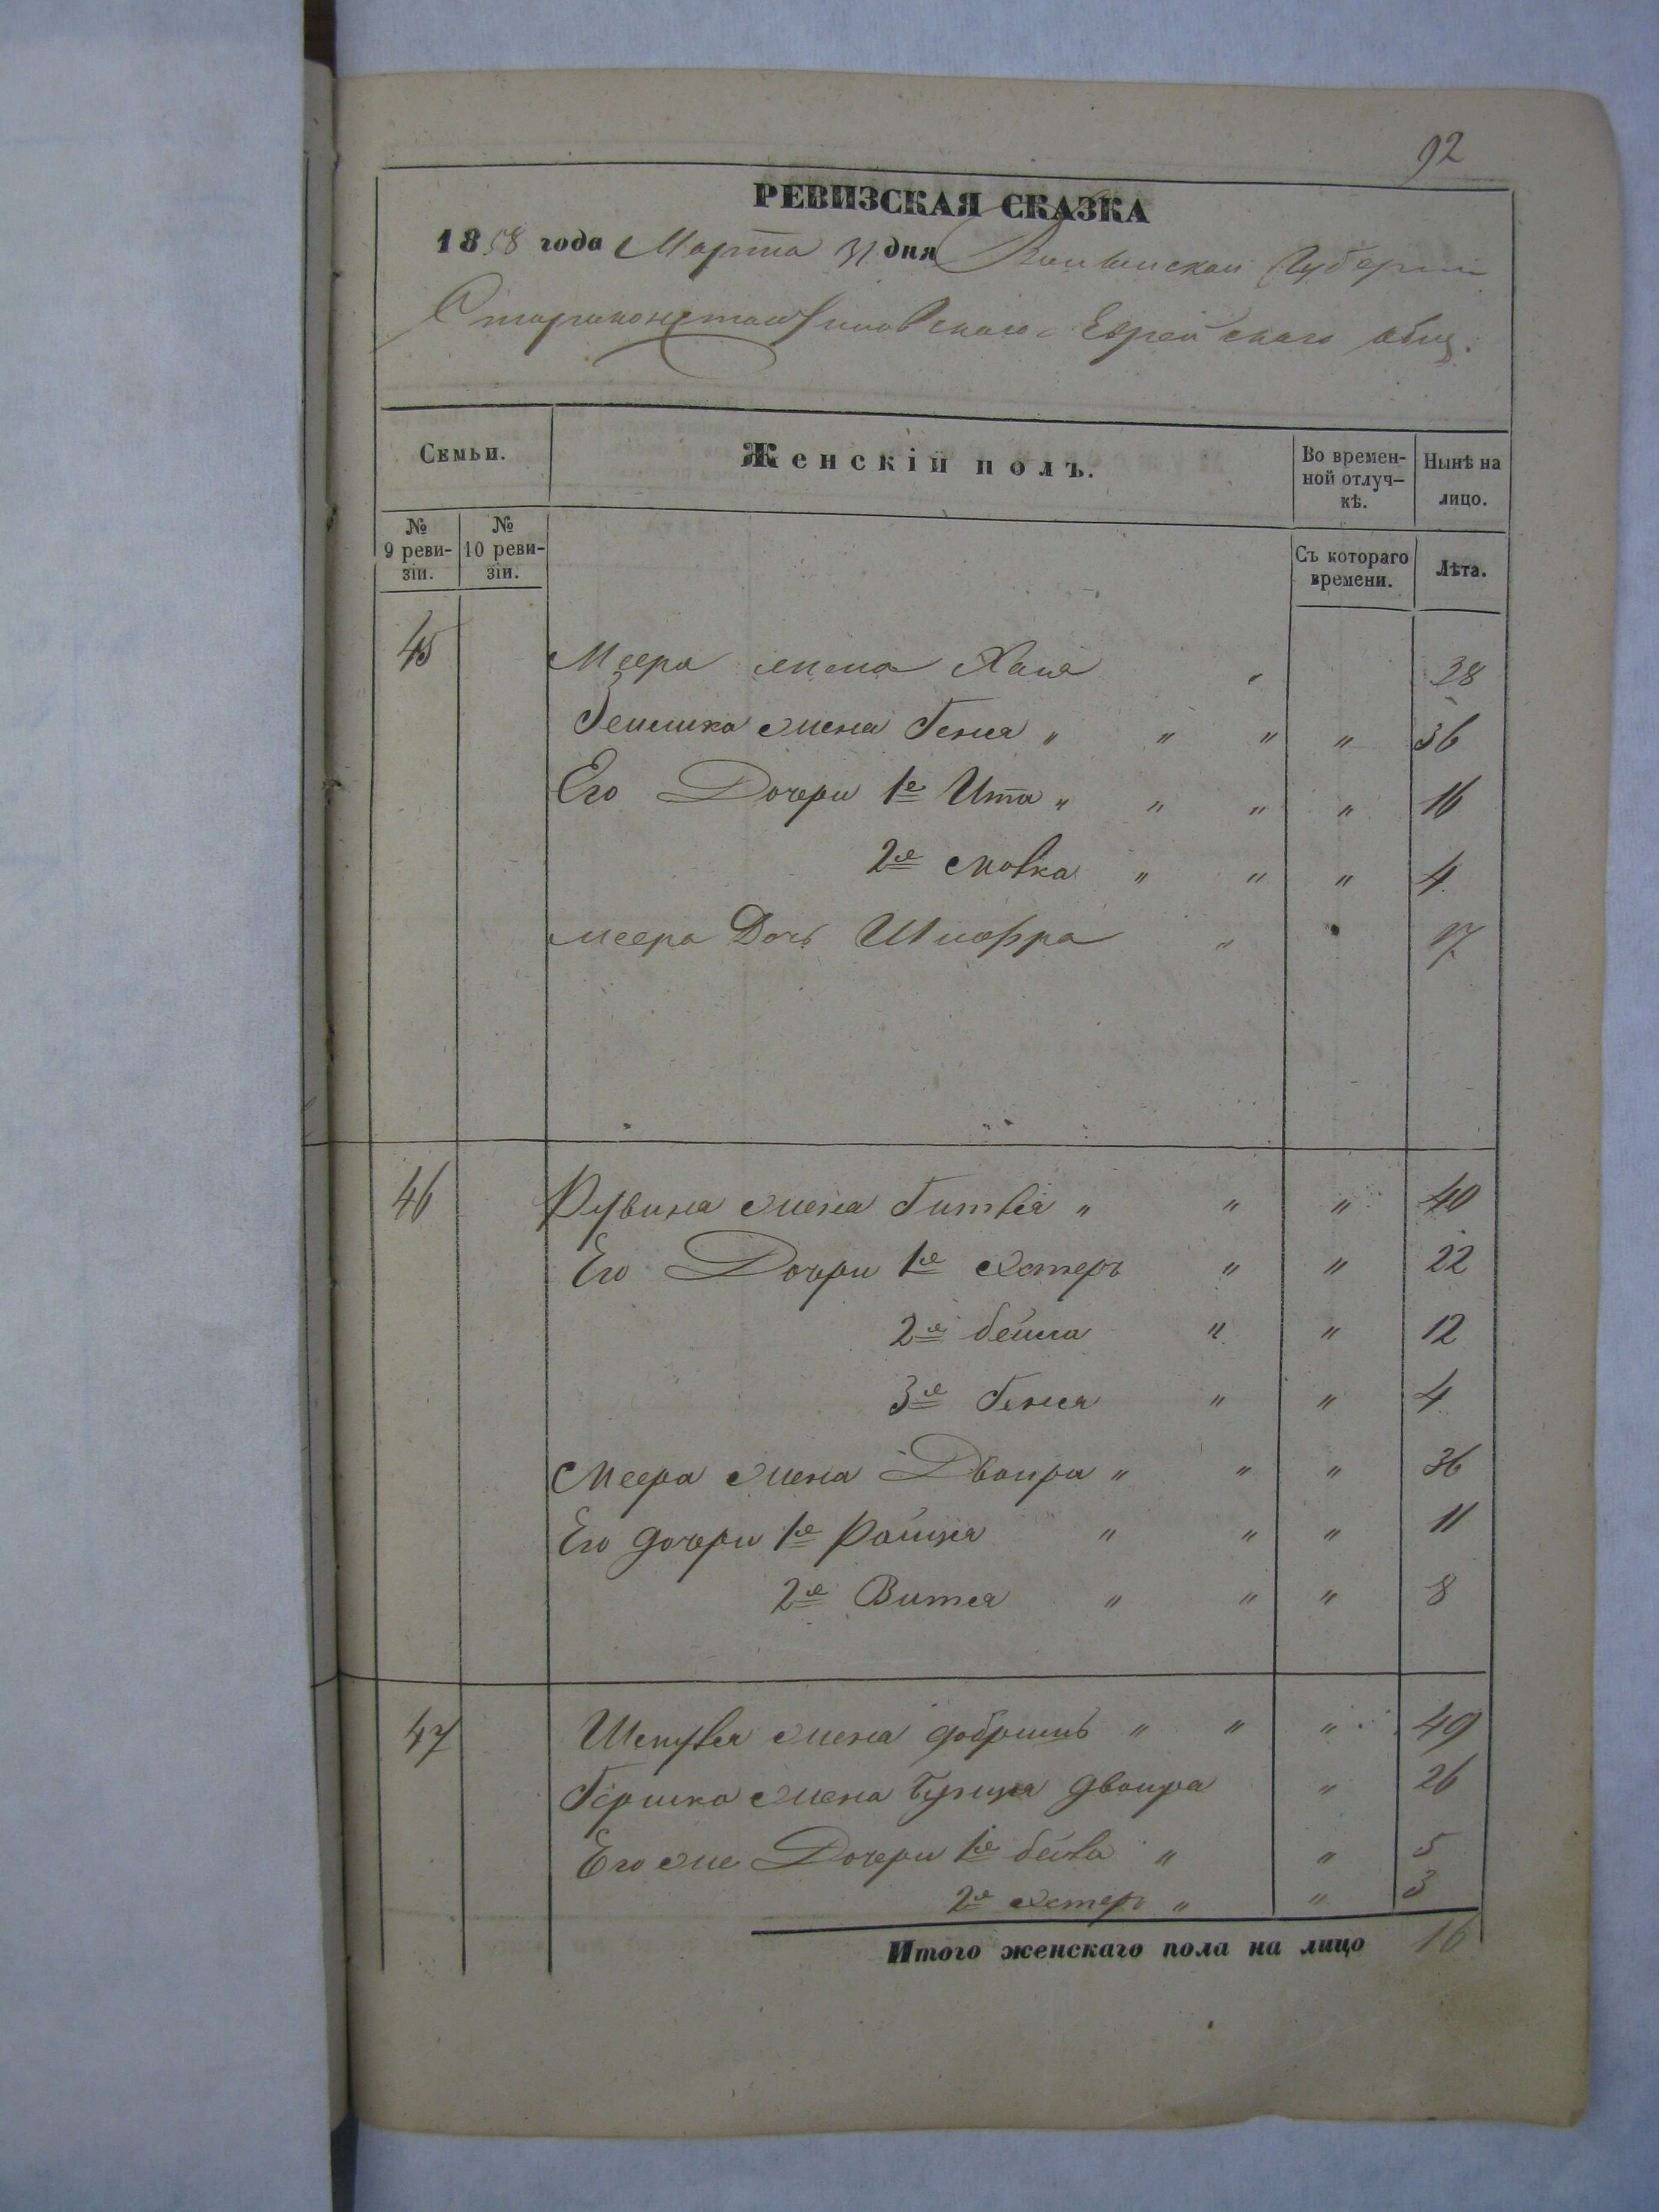 92
РЕВИЗСКАЯ СКАЗКА
1858 года Марта 31 дня Волынской Губернии
Староконстантиновскаго Еврейскаго общ.
Семьи. Женскій полъ. Во времен-ной отлуч-кѣ. Нынѣ на лицо.
№ 9 реви-зіи. № 10 реви-зіи. Съ котораго времени. Лѣта.
45 Меера жена Хая " 38
жена Геня " " " " 36
Его Дочери 1е Ита " " " " 16
2е " " " 4
Меера Дочь Шифра " " 17
46 Рувина жена Гитля " " " 40
Его Дочери 1е Эстеръ " " 22
2е бейла " " 12
3е Геня " " 4
Меера жена Двойра " " " 36
Его дочери 1е Райца " " " 11
2е Витя " " " 8
47 жена добришъ " " " 49
Гершка жена двойра " 26
Его же Дочери 1е бейла " " 5
2е Эстеръ " " 3
Итого женскаго пола на лицо 16